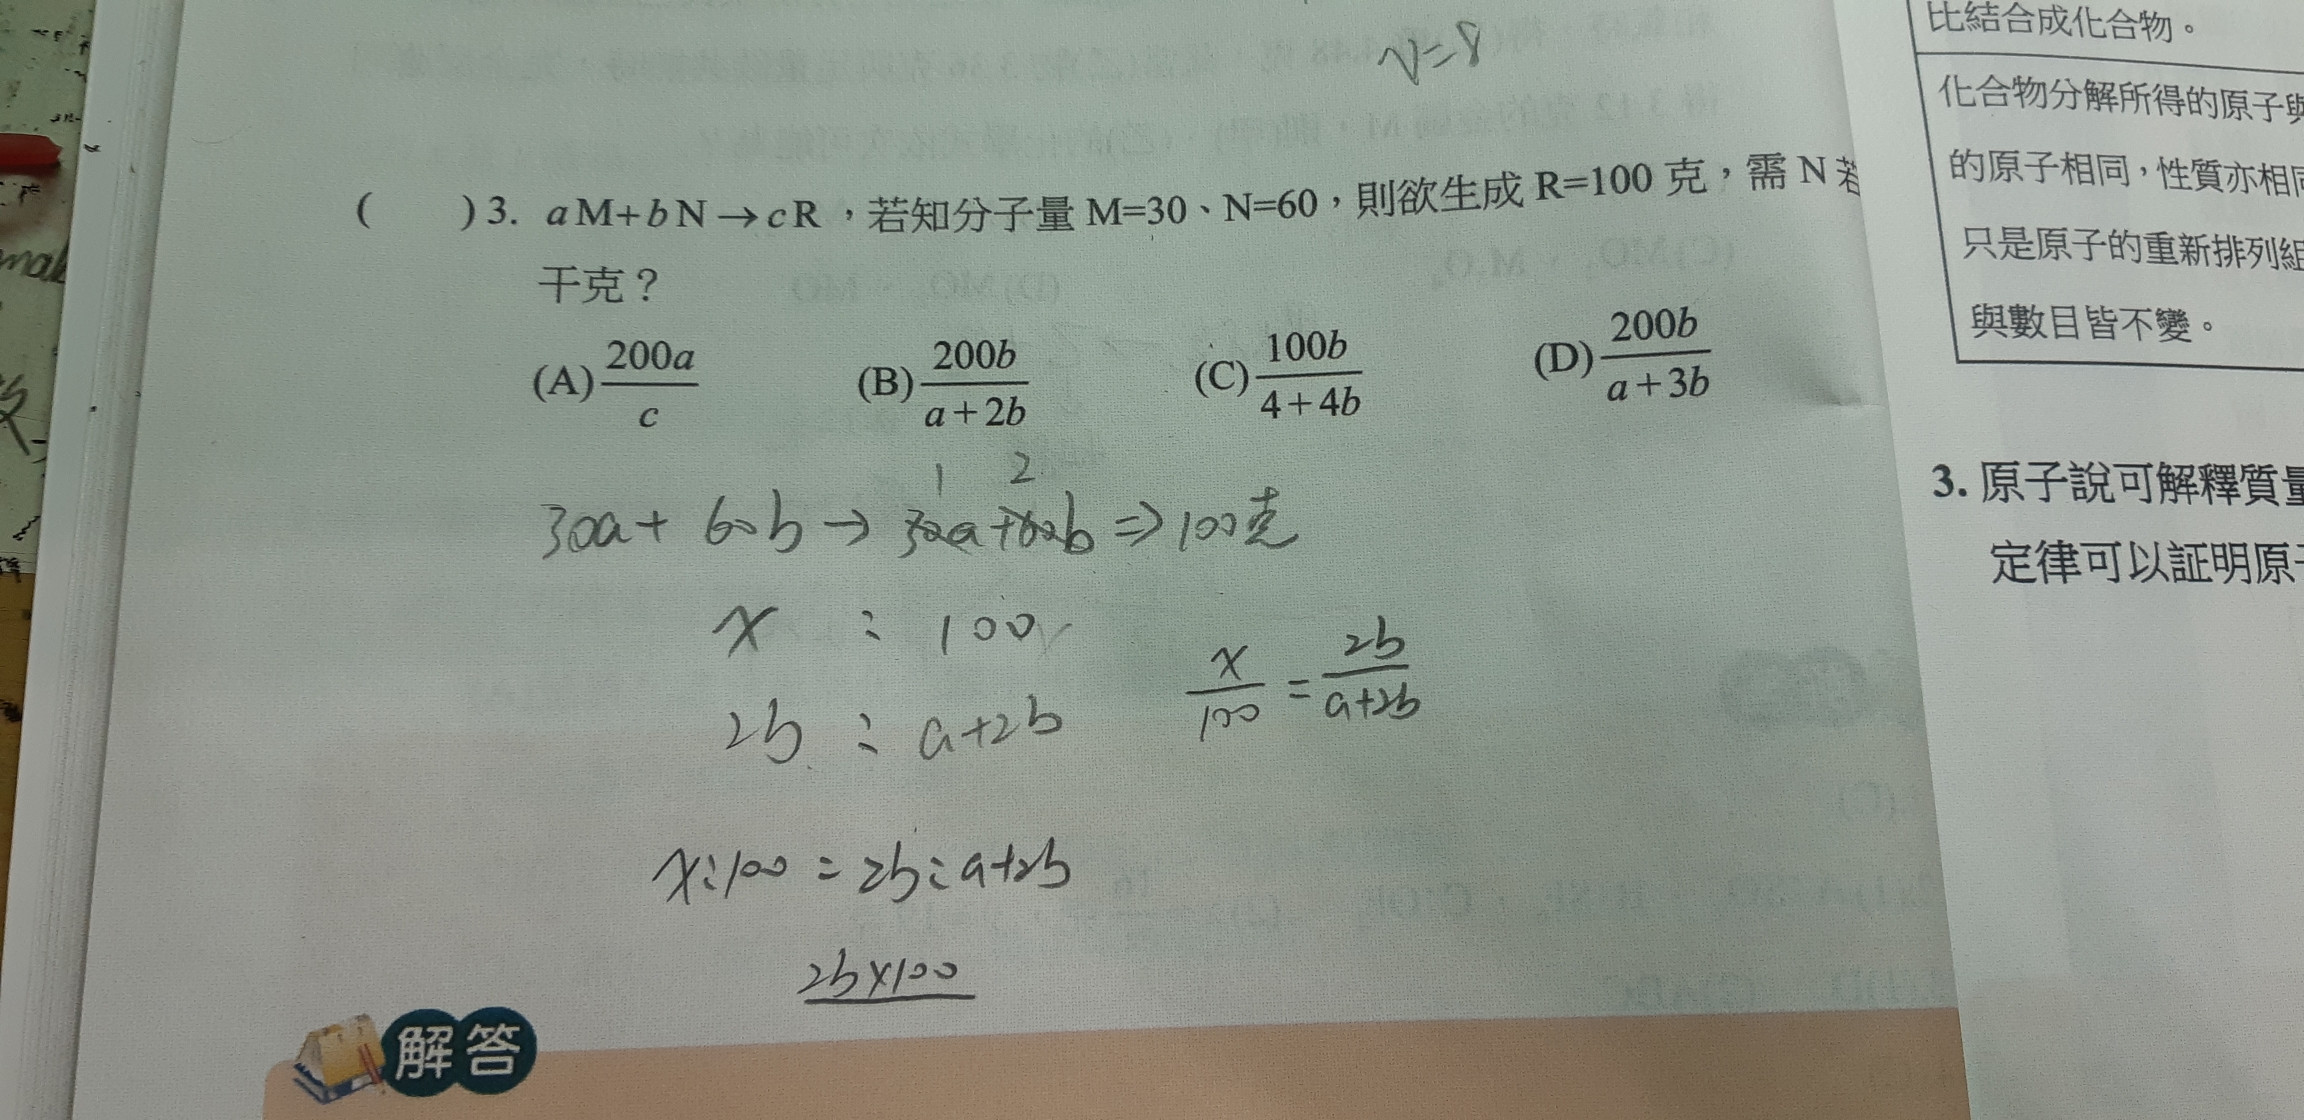 v=8
( )3. aM+bN→cR，若知分子量 M=30、N=60，則欲生成 R=100 克，需 N 若
干克？
(A) 200a/c (B) 200b/a+2b (C) 100b/4+4b (D) 200b/a+3b
1 2
30a+ 60b → 30a+60b ⇒ 100克
x : 100
2b : a+2b
x/100 = 2b/a+2b
x:100 = 2b:a+2b
2b×100
解答
比結合成化合物。
化合物分解所得的原子與
的原子相同，性質亦相同
只是原子的重新排列組
與數目皆不變。
3. 原子說可解釋質量
定律可以証明原子